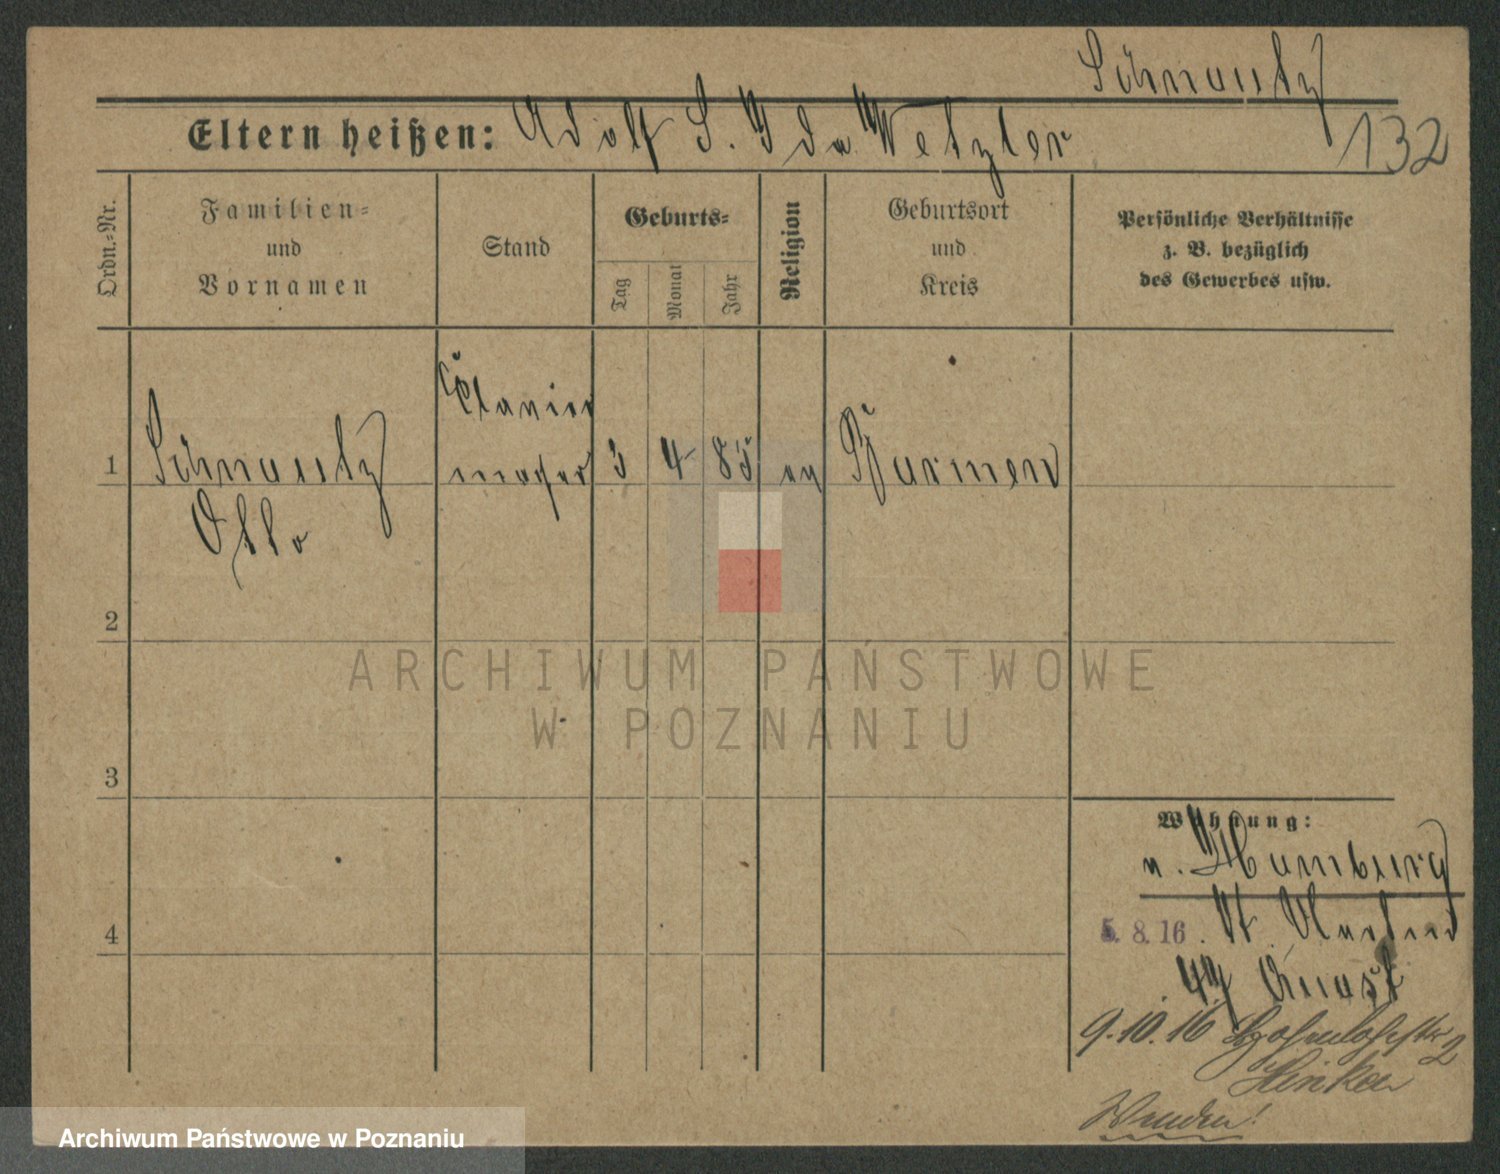 Schnautz
132
Eltern heißen: Adolf S. Ida Wetzler
Ordn.-Nr.
Familien-
und
Vornamen
Stand
Geburts-
Tag
Monat
Jahr
Religion
Geburtsort
und
Kreis
Persönliche Verhältnisse
z. B. bezüglich
des Gewerbes usw.
1
Schnautz
Otto
Clavier
macher
3
4
85
ev
Barmen
2
3
4
ARCHIWUM PAŃSTWOWE
W POZNANIU
Wohnung:
v. Hamburg
5. 8. 16.
9.10.16 Hohenlohestr 2
Wenden!
Archiwum Państwowe w Poznaniu